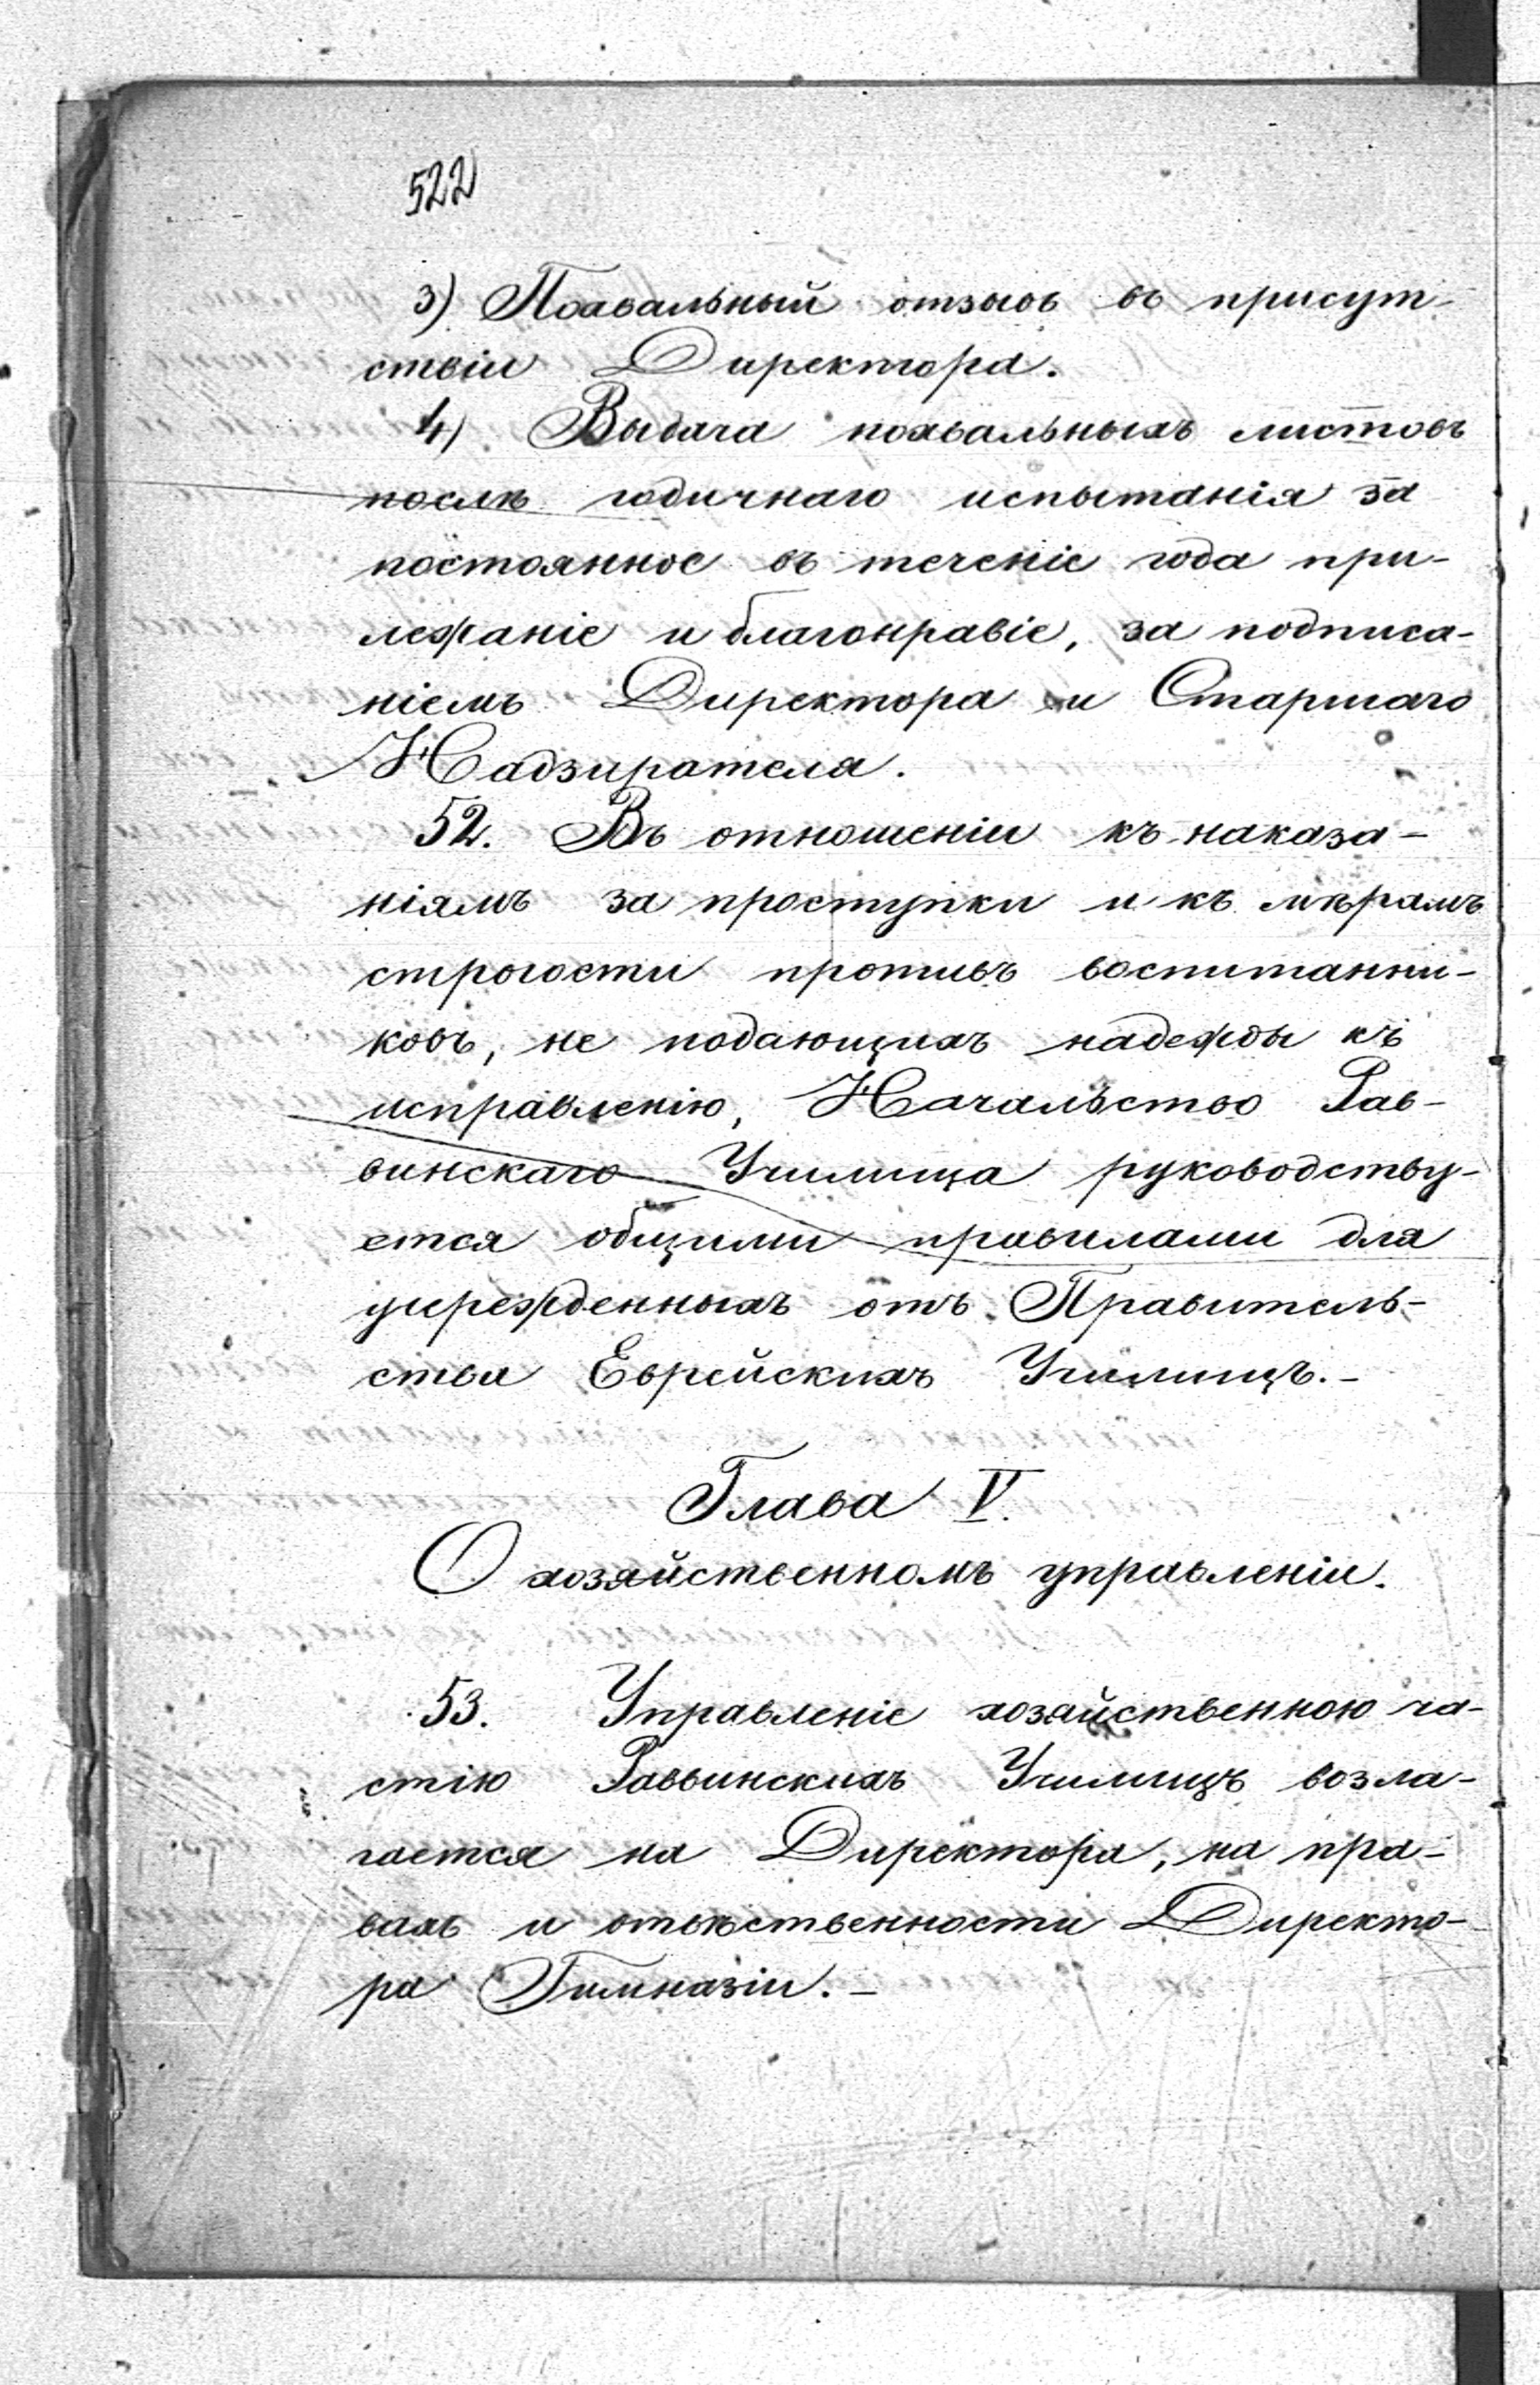 522
3) Похвальный отзывъ въ присут-
ствіи Директора.
4) Выдача похвальныхъ листовъ
послѣ годичнаго испытанія за
постоянное въ теченіе года при-
лежаніе и благонравіе, за подписа-
ніемъ Директора и Старшаго
Надзирателя.
52. Въ отношеніи къ наказа-
ніямъ за проступки и къ мѣрамъ
строгости противъ воспитанни-
ковъ, не подающихъ надежды къ
исправленію, Начальство Рав-
винскаго Училища руководству-
ется общими правилами для
учрежденныхъ отъ Правитель-
ства Еврейскихъ Училищъ.-
Глава V.
О хозяйственномъ управленіи.
53. Управленіе хозяйственною ча-
стію Раввинскихъ Училищъ возла-
гается на Директора, на пра-
вахъ и отвѣтственности Директо-
ра Гимназіи.-